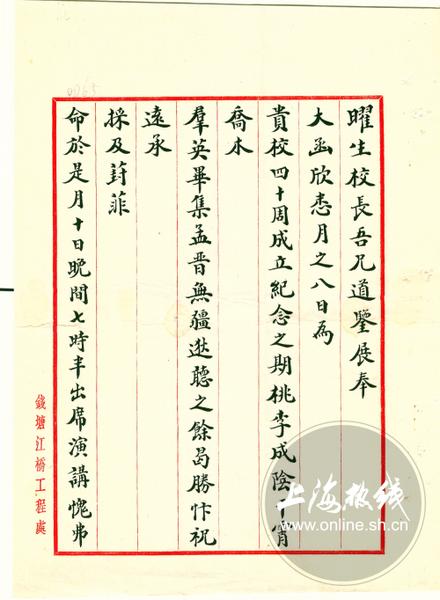 0065
曜生校長吾兄道鑒展奉
大函欣悉月之八日為
貴校四十周成立紀念之期桃李成陰
喬木
羣英畢集孟晋無疆逖聽之餘曷勝忭祝
遠承
採及葑菲
命於是月十日晚間七時半出席演講愧弗
錢塘江橋工程處
上海热线
www.online.sh.cn